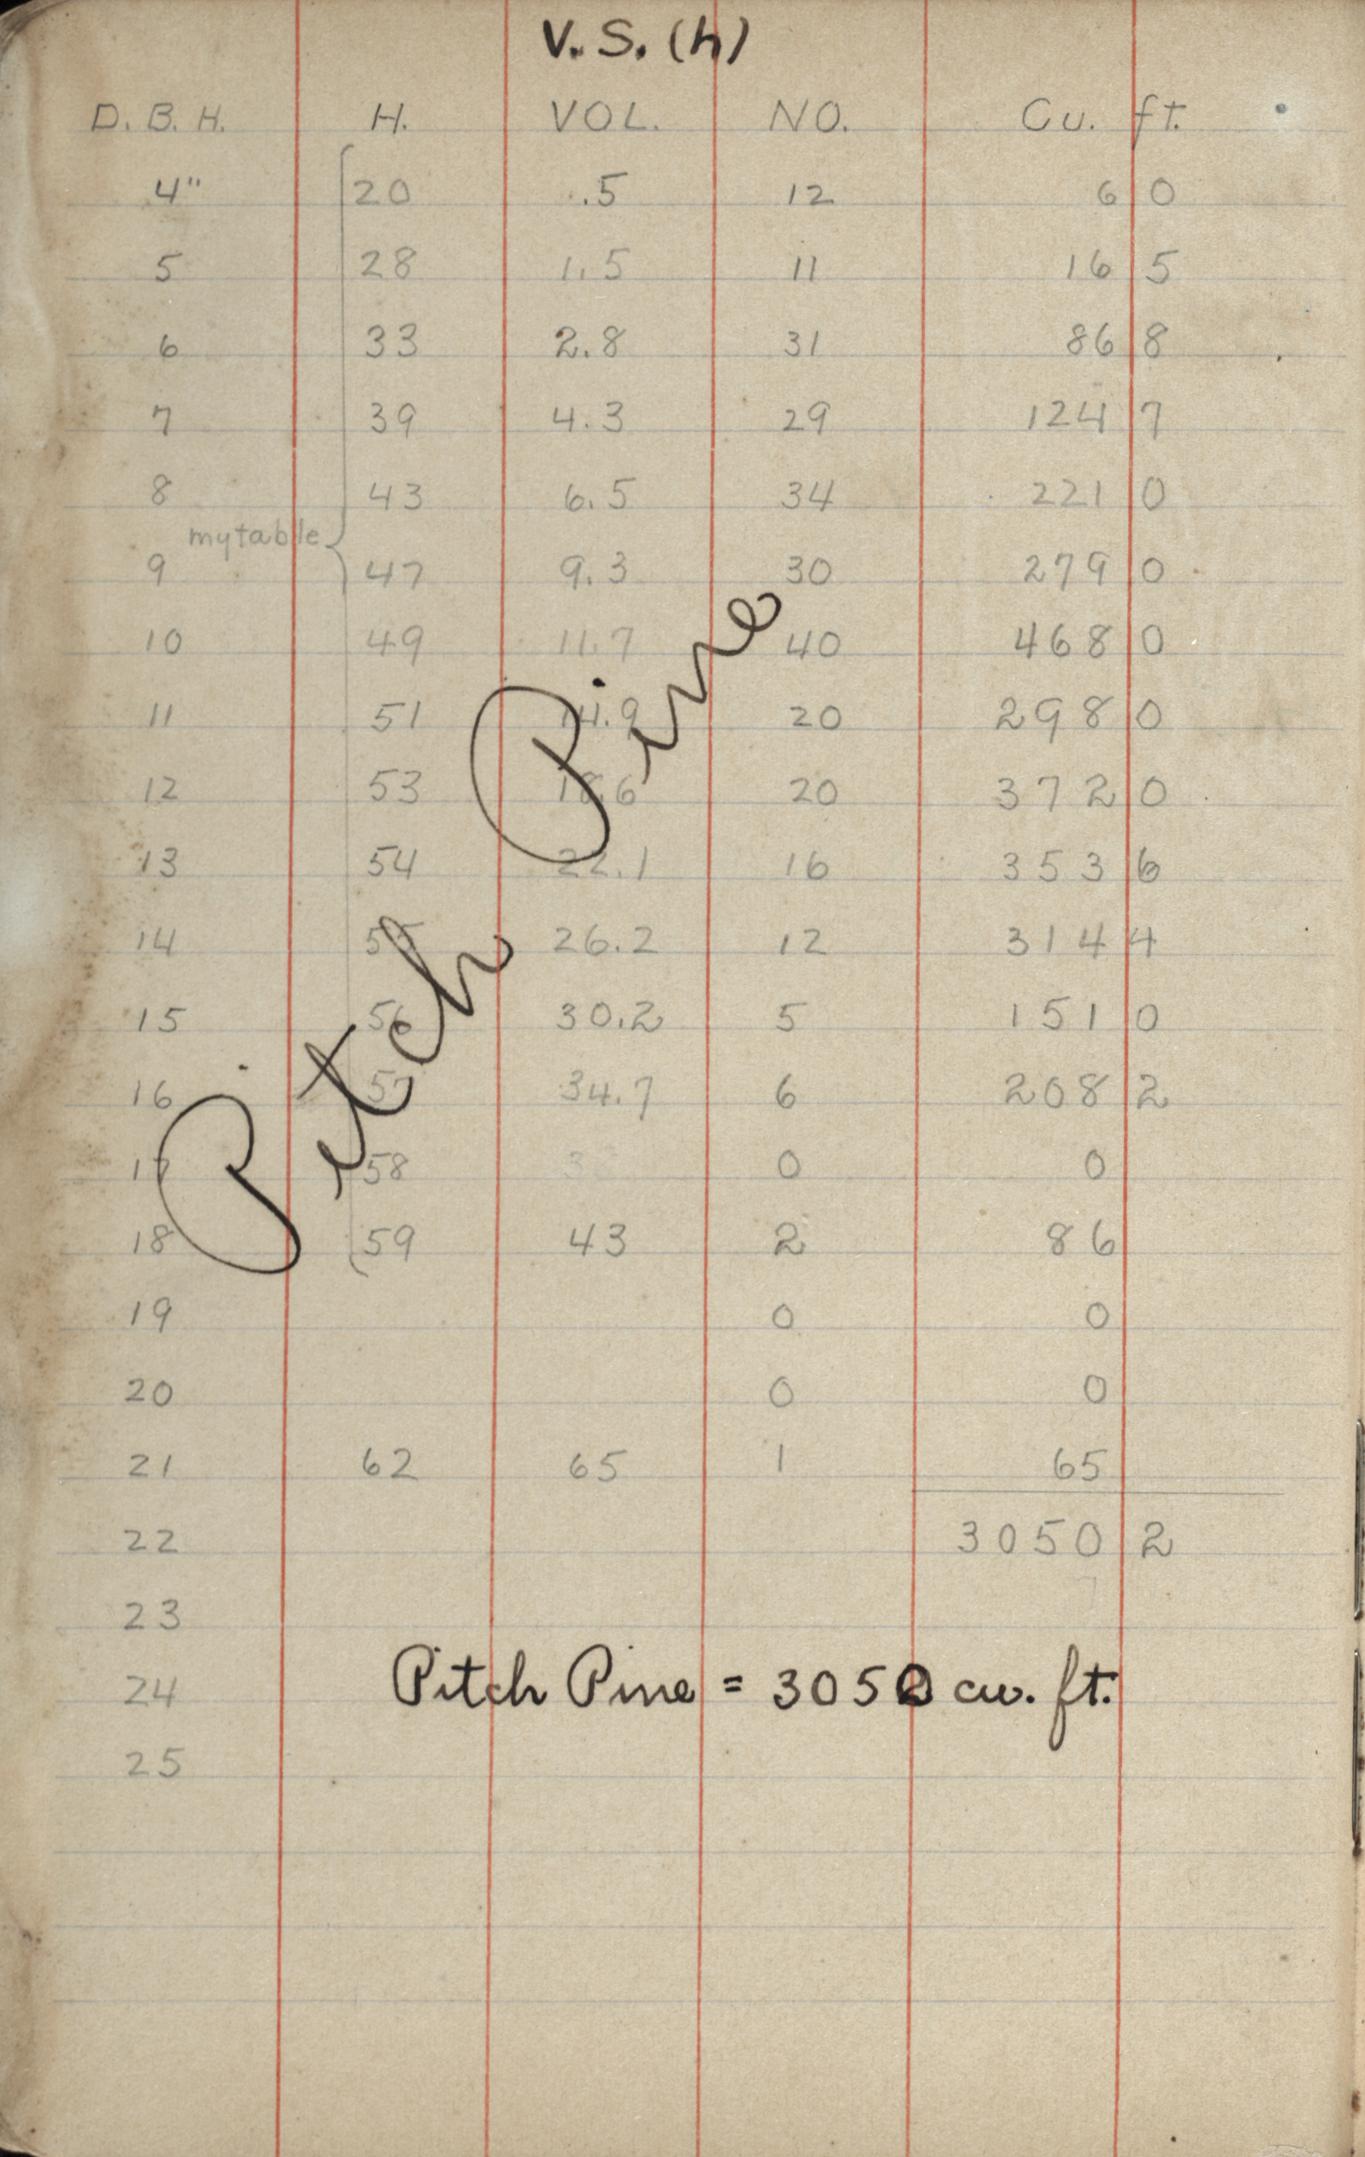 V. S. (h)
D. B. H. H. VOL. NO. Cu. ft.
4" 20 .5 12 6 0
5 28 1.5 11 16 5
6 33 2.8 31 86 8
7 39 4.3 29 124 7
8 43 6.5 34 221 0
my table
9 47 9.3 30 279 0
10 49 11.7 40 468 0
11 51 14.9 20 298 0
12 53 18.6 20 372 0
13 54 22.1 16 353 6
14 55 26.2 12 314 4
15 56 30.2 5 151 0
16 57 34.7 6 208 2
17 58 0 0
18 59 43 2 86
19 0 0
20 0 0
21 62 65 1 65
22 3050 2
23
24 Pitch Pine = 3050 cu. ft.
25
Pitch Pine